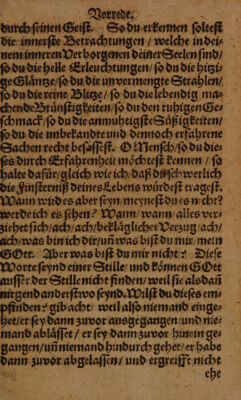 Vorrede.
durch seinen Geist. So du erkennen soltest
die innerste Betrachtungen / welche in dei-
nem inneren Verborgenen deiner Seelen sind/
so du die helle Erleuchtungen / so du die hitzi-
ge Gläntze / so du die unvermengte Strahlen/
so du die reine Blitze / so du die lebendig ma-
chende Brünstigkeiten / so du den ruhigen Ge-
schmack / so du die anmuhtigste Süßigkeiten /
so du die unbekandte und dennoch erfahrene
Sachen recht besässest. O Mensch / so du die-
ses durch Erfahrenheit möchtest kennen / so
halte dafür / gleich wie ich / daß du schwerlich
die Finsterniß deines Lebens würdest tragen.
Wann wird es aber seyn / meynest du es nicht?
werde ich es sehen? Wann / wann / alles ver-
ziehet sich / ach / ach / beklaglicher Verzug / ach /
ach / was bin ich dir / uñ was bist du mir / mein
GOtt. Aber was bist du mir nicht? Diese
Worte seynd einer Stille / und können GOtt
ausser der Stille nicht finden / weil sie als dañ
nirgend anderstwo seynd. Wilst du dieses em-
pfinden? gib acht / weil also niemand einge-
het / er sey dann zuvor ausgegangen / und nie-
mand ablässet / er sey dann zuvor hinein ge-
gangen / uñ niemand hindurch gehet / er habe
dann zuvor abgelassen / und ergreifft nicht
ehe